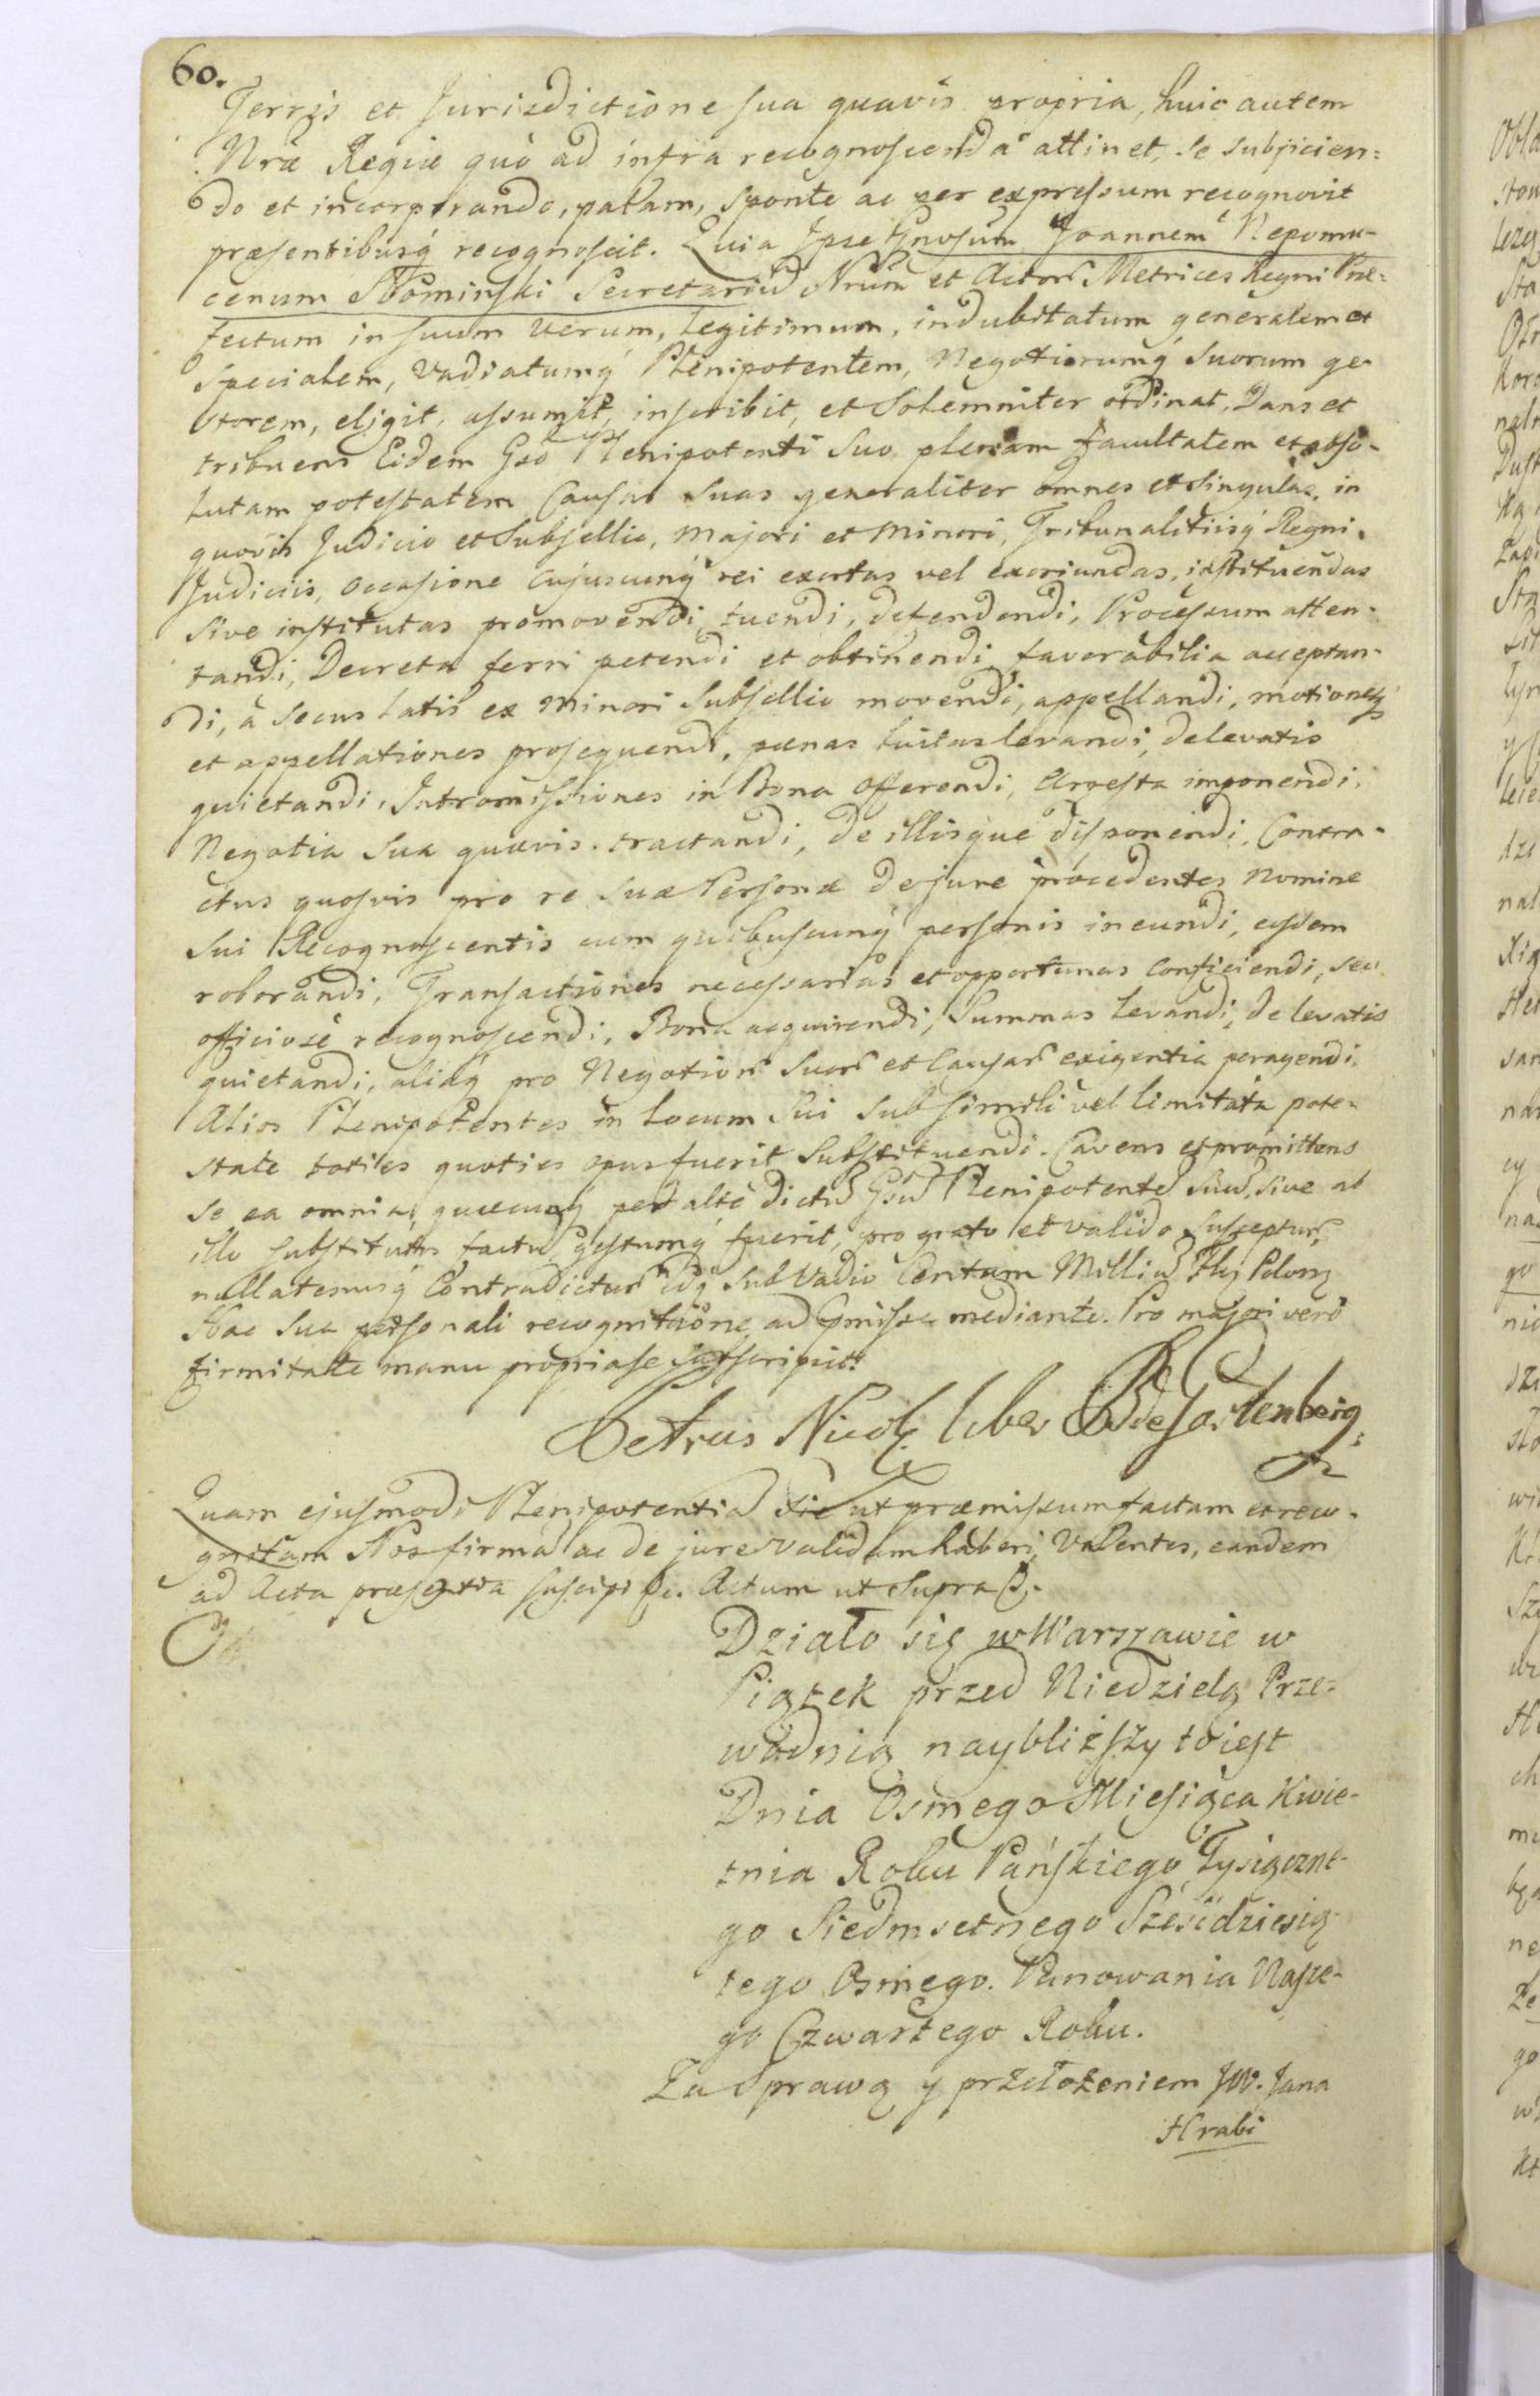 60.
Terris et Jurisdictione sua quavis propria, huic autem
Nrae Regiae quò ad infra recognoscenda attinet, se subjicien=
do et incorporando, palam, sponte ac per expressum recognovit
praesentibusq recognoscit. Quia Ipse Gnosum Joannem Nepomu-
cenum Słominski Secretariu Nrum et Actor Metrices Regni Prae=
fectum in suum verum, Legitimum, indubitatum generalem et
specialem, Vadiatumq Plenipotentem, Negotiorumq suorum ge-
storem, eligit, assumit, inscribit, et Solemniter ordinat, Dans et
tribuens Eidem Gso Plenipotenti suo plenam facultatem et abso-
lutam potestatem Causas suas generaliter omnes et singulas, in
quovis Judicio et Subsellio, Majori et Minori, Tribunalitiisq Regni
Judiciis, occasione cujuscunq rei exortas vel exoriundas, instituendas
sive institutas promovendi, tuendi, defendendi, Processum atten-
tandi, Decreta ferri petendi et obtinendi, favorabilia acceptan-
di, à secus latis ex Minori Subsellio movendi, appellandi, motionesq
et appellationes prosequendi, paenas luitas levandi, de levatis
quietandi, Intromissiones in Bona offerendi, Arresta imponendi,
Negotia sua quaevis tractandi, de illisque disponendi, Contra-
ctus quosvis pro re suae Personae de jure procedentes nomine
sui Recognoscentis cum quibuscunq personis ineundi, eosdem
roborandi, Transactiones necessarias et opportunas conficiendi, seu
officiose recognoscendi, Bona acquirendi, Summas levandi, de levatis
quietandi, aliaq pro Negotior suor et Causar exigentia peragendi.
Alios Plenipotentes in locum sui sub simili vel limitata pote-
state toties quoties opus fuerit Substituendi. Cavens et promittens
se ea omnia, quaecunq per altè dictu Gsu Plenipotente suu, sive ab
illo substitutos factu gestumq fuerit, pro grato et valido susceptur,
nullatenusq Contradictur idq sub Vadio Centum Milliu Flj Polon
Hac sua personali recognitione ad pmissa mediante. Pro majori verò
firmitate manu propria se subscripsit.
Petrus Nicol. liber B de Gartenberg
Quam ejusmodi Plenipotentia sic ut praemissum factam et reco-
gnitam Nos firma ac de jure validam haberi, Volentes, eandem
ad Acta praesentia suscipi &c. Actum ut supra
Działo się w Warszawie w
Piątek przed Niedzielą Prze-
wodnią naybliższy to iest
Dnia Osmego Miesiąca Kwie-
tnia Roku Pańskiego Tysiączne-
go Siedmsetnego Sześćdziesią-
tego Osmego. Panowania Nasze-
go Czwartego Roku.
Za Sprawą y przełożeniem JW. Jana
Hrabi